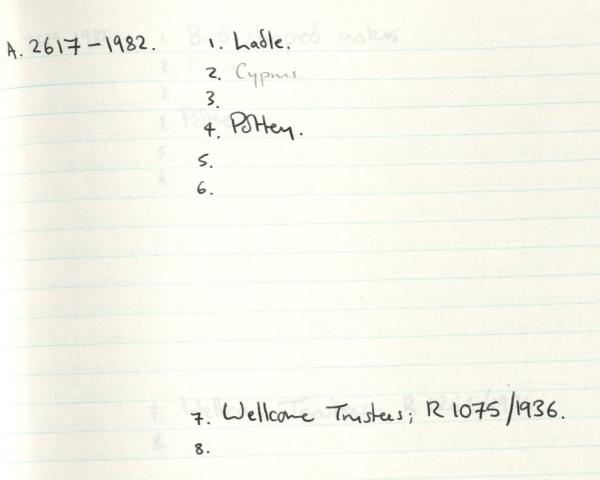 A. 2617-1982. 1. Ladle.
2. Cyprus
3.
4. Pottery.
5.
6.
7. Wellcome Trustees; R 1075/1936.
8.